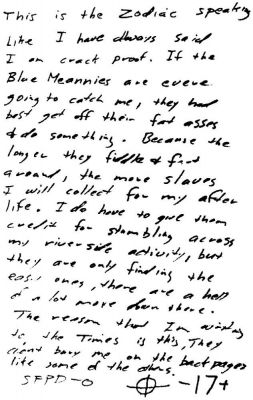 This is the Zodiac speaking
Like I have always said
I am crack proof. If the
Blue Meannies are evere
going to catch me, they had
best get off their fat asses
& do something. Because the
longer they fiddle & fart
around, the more slaves
I will collect for my after
life. I do have to give them
credit for stumbling across
my riverside activity, but
they are only finding the
easy ones, there are a hell
of a lot more down there.
The reason that I'm writing
to the Times is this, They
dont bury me on the back pages
like some of the others.
SFPD-0 -17+